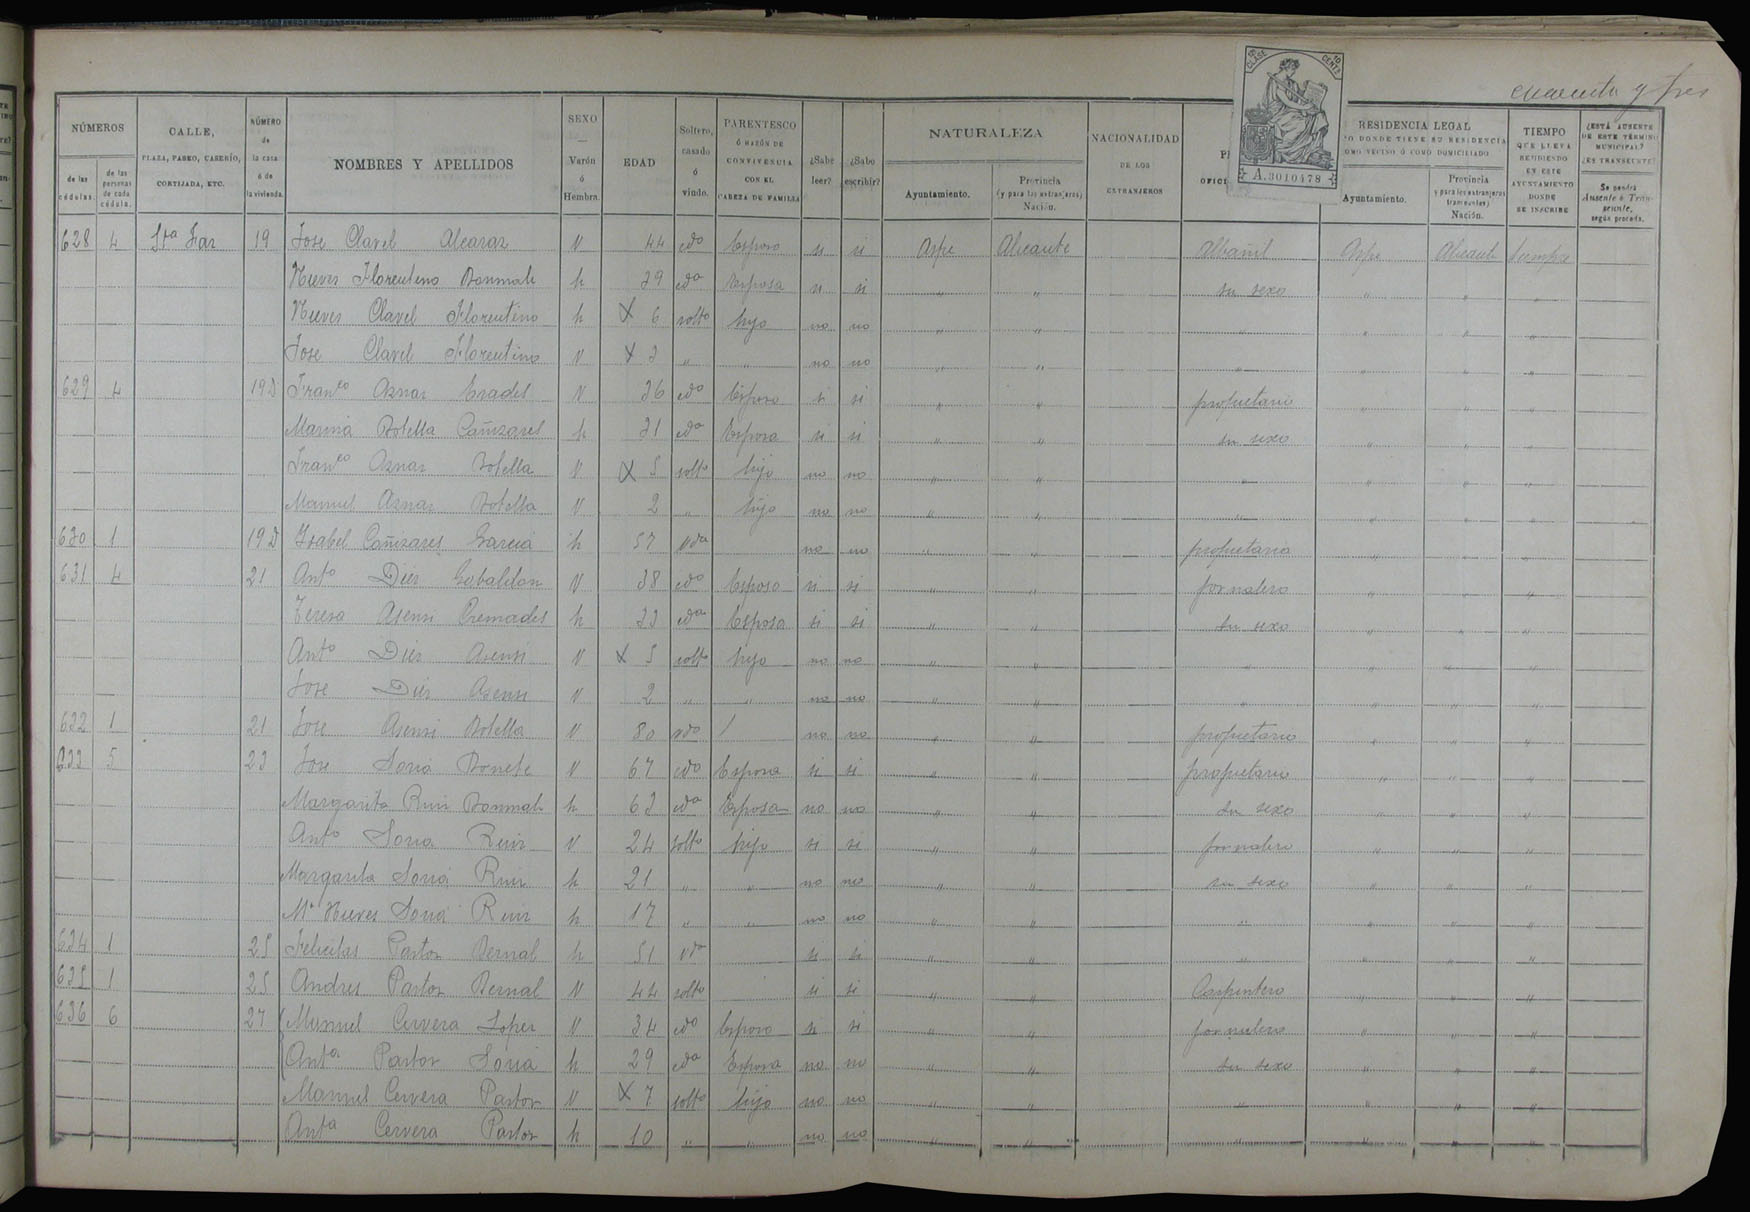 cuarenta y tres
18ª CLASE 10 CENTS
A.3010478
NÚMEROS
de las cédulas.
de las personas de cada cédula.
CALLE,
PLAZA, PASEO, CASERÍO,
CORTIJADA, ETC.
NÚMERO
de
la casa
ó de
la vivienda.
NOMBRES Y APELLIDOS
SEXO
Varón
ó
Hembra.
EDAD
Soltero,
casado
ó
viudo.
PARENTESCO
Ó RAZÓN DE
CONVIVENCIA
CON EL
CABEZA DE FAMILIA
¿Sabe leer?
¿Sabe escribir?
NATURALEZA
Ayuntamiento.
Provincia
(y para los extranjeros)
Nación.
NACIONALIDAD
DE LOS
EXTRANJEROS
RESIDENCIA LEGAL
DONDE TIENE SU RESIDENCIA
COMO VECINO Ó COMO DOMICILIADO
Ayuntamiento.
Provincia
y para los extranjeros
transeuntes)
Nación.
TIEMPO
QUE LLEVA
RESIDIENDO
EN ESTE
AYUNTAMIENTO
DONDE
SE INSCRIBE
¿ESTÁ AUSENTE
DE ESTE TÉRMINO
MUNICIPAL?
¿ES TRANSEUNTE?
Se pondrá
Ausente ó Transeunte,
según proceda.
628 4 Sta Faz 19 Jose Clavel Alcaraz V 44 cdo Esposo si si Aspe Alicante Albañil Aspe Alicante Siempre
Nieves Florentino Bonmati h 39 cda Esposa si si " " su sexo " " "
Nieves Clavel Florentino h X 6 solto hijo no no " " " " " "
Jose Clavel Florentino V X 3 " " no no " " " " " "
629 4 19D Franco Aznar Prades V 36 cdo Esposo si si " " propietario " " "
Maria Botella Cañizares h 31 cda Esposa si si " " su sexo " " "
Franco Aznar Botella V X 5 solto hijo no no " " " " " "
Manuel Aznar Botella V 2 " hijo no no " " " " " "
630 1 19D Isabel Cañizares Garcia h 57 vda no no " " propietaria " " "
631 4 21 Anto Dies Gobaldon V 38 cdo Esposo si si " " jornalero " " "
Teresa Asensi Cremades h 33 cda Esposa si si " " su sexo " " "
Anto Dies Asensi V X 5 solto hijo no no " " " " " "
Jose Dies Asensi V 2 " " no no " " " " " "
632 1 21 Jose Asensi Botella V 80 vdo / no no " " propietario " " "
633 5 23 Jose Soria Bonete V 67 cdo Esposo si si " " propietario " " "
Margarita Ruiz Bonmati h 63 cda Esposa no no " " su sexo " " "
Anto Soria Ruiz V 24 solto hijo si si " " jornalero " " "
Margarita Soria Ruiz h 21 " " no no " " su sexo " " "
Mª Nieves Soria Ruiz h 17 " " no no " " " " " "
634 1 25 Felicitas Pastor Bernal h 51 vda si si " " " " " "
635 1 25 Andres Pastor Bernal V 44 solto si si " " Carpintero " " "
636 6 27 Manuel Cervera Lopez V 34 cdo Esposo si si " " jornalero " " "
Anta Pastor Soria h 29 cda Esposa no no " " su sexo " " "
Manuel Cervera Pastor V X 7 solto hijo no no " " " " " "
Anta Cervera Pastor h 10 " " no no " " " " " "